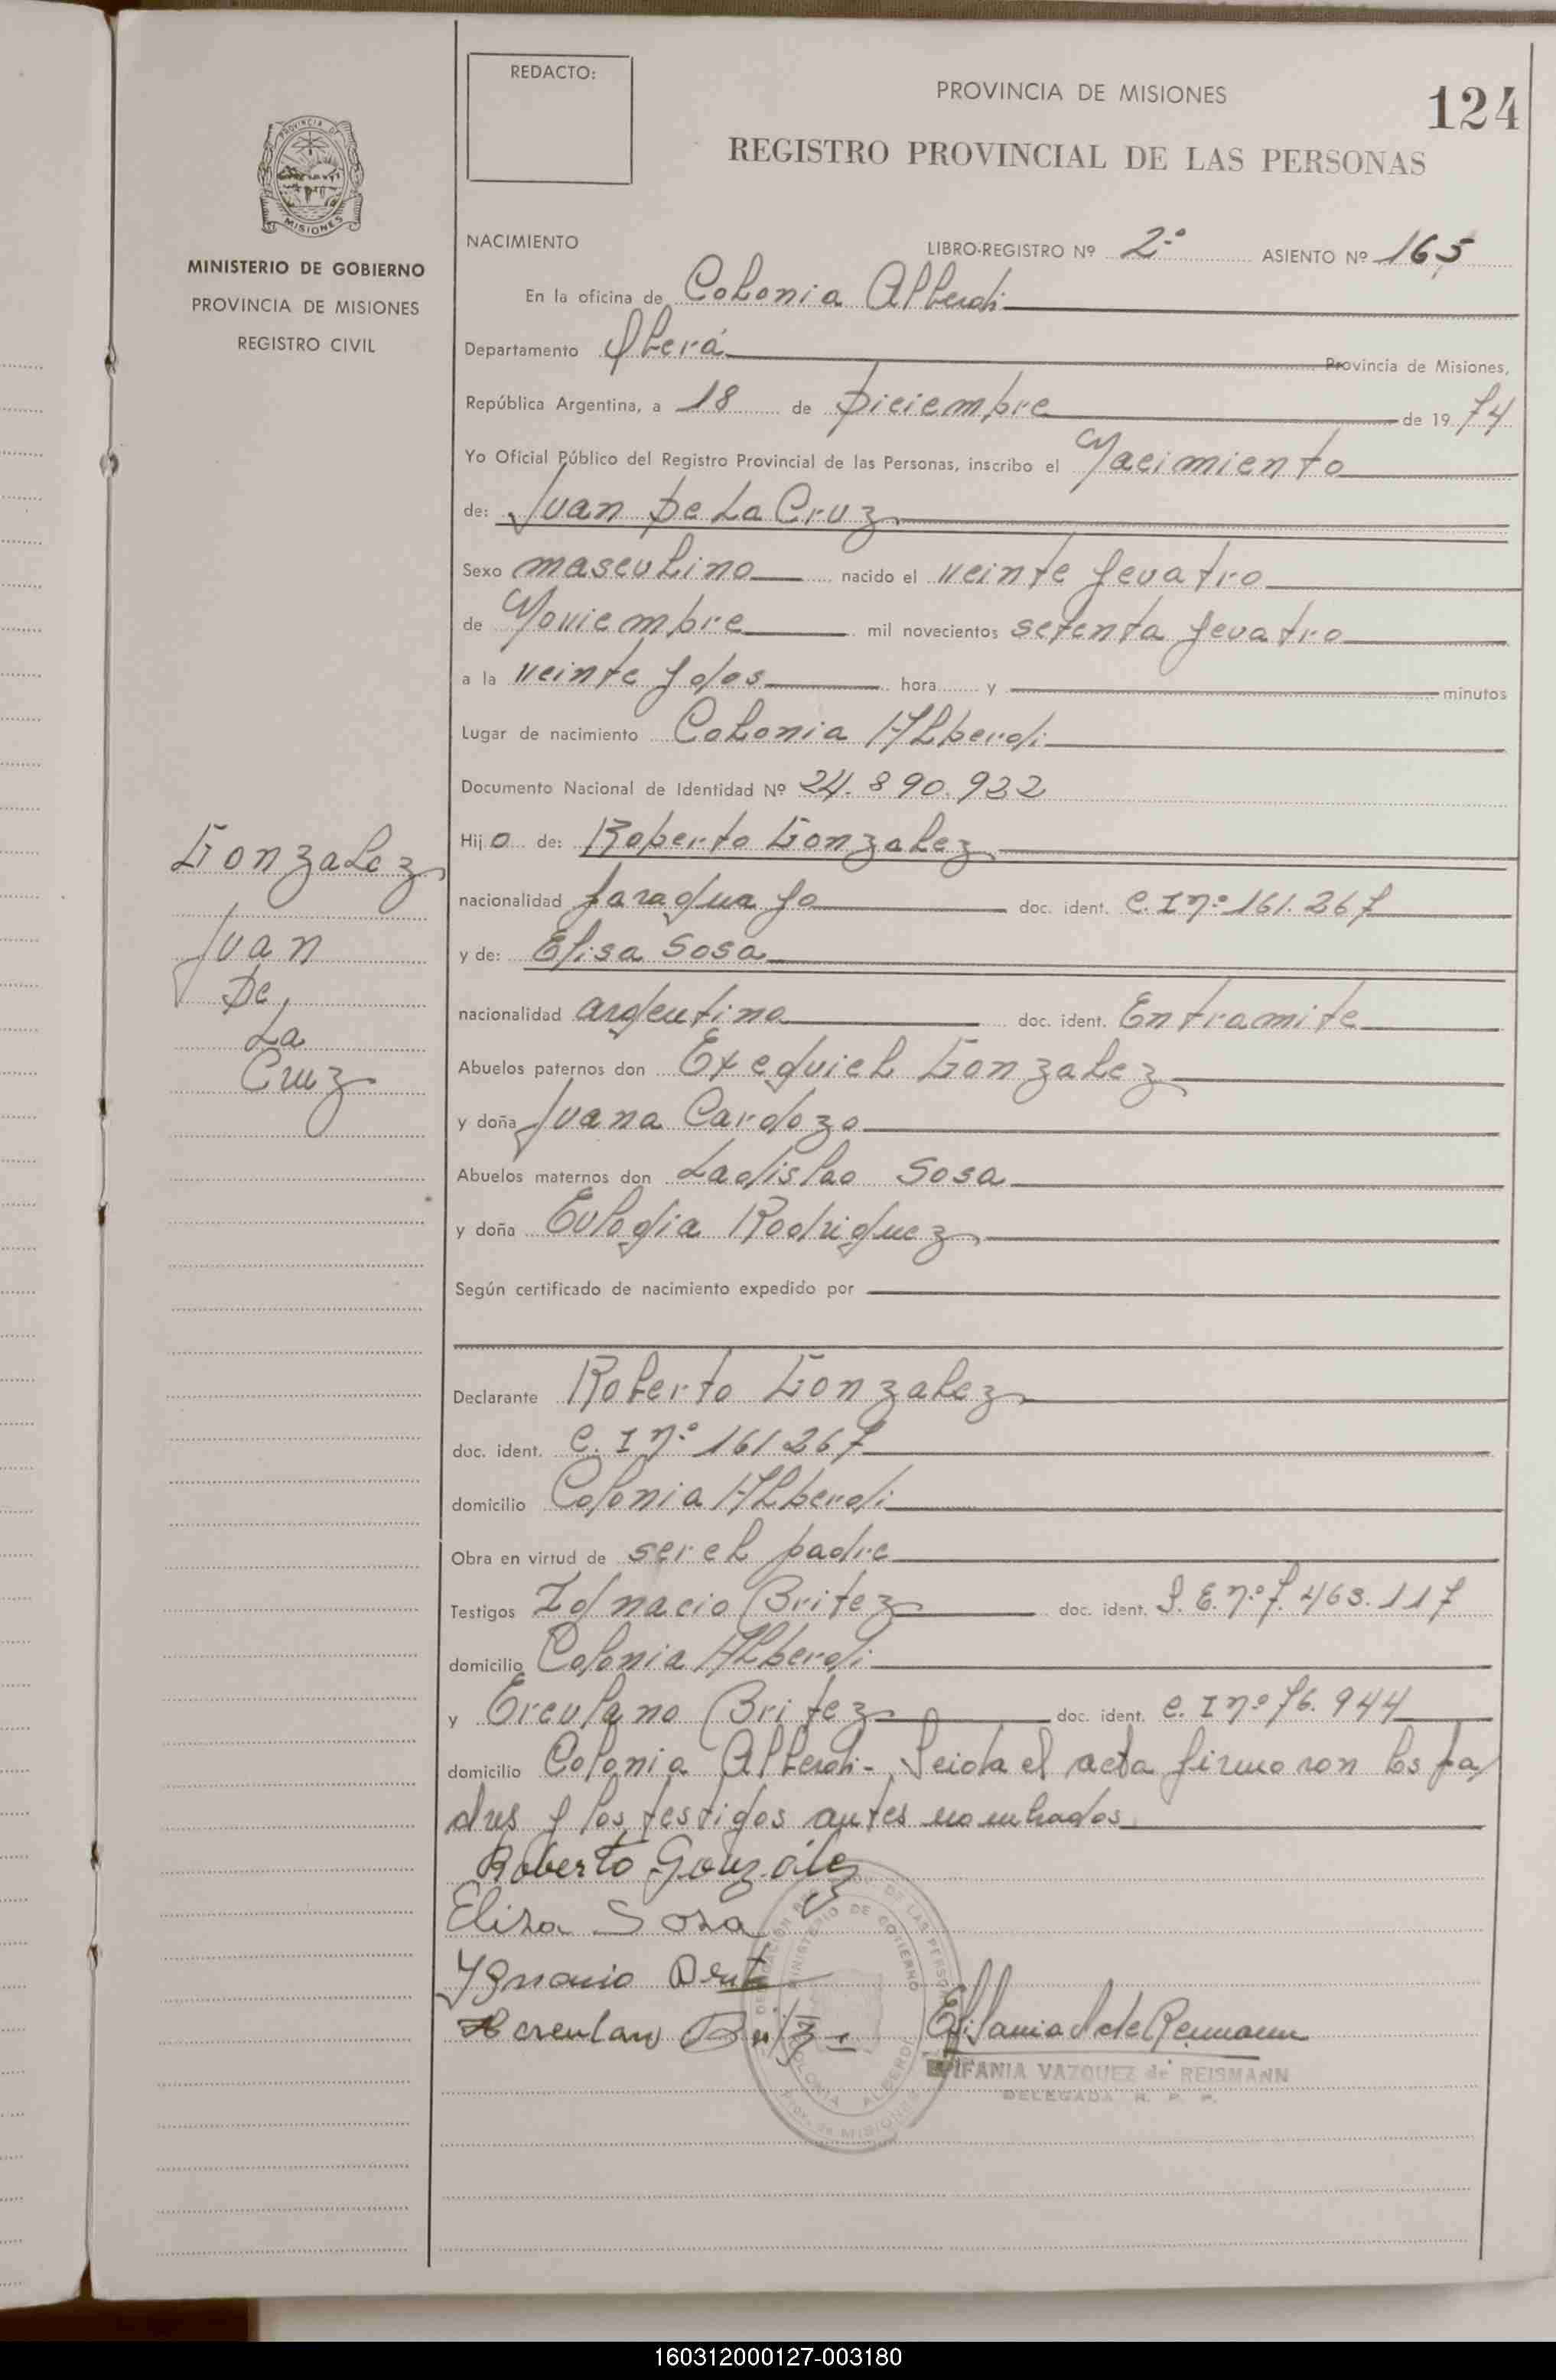 REDACTO:
PROVINCIA DE MISIONES
124
REGISTRO PROVINCIAL DE LAS PERSONAS
PROVINCIA DE
MISIONES
MINISTERIO DE GOBIERNO
PROVINCIA DE MISIONES
REGISTRO CIVIL
NACIMIENTO LIBRO-REGISTRO Nº 2º ASIENTO Nº 165
En la oficina de Colonia Alberdi
Departamento Oberá Provincia de Misiones,
República Argentina, a 18 de Diciembre de 1974
Yo Oficial Público del Registro Provincial de las Personas, inscribo el Nacimiento
de: Juan De La Cruz
Sexo masculino nacido el veinte y cuatro
de Noviembre mil novecientos setenta y cuatro
a la veinte y dos hora y minutos
Lugar de nacimiento Colonia Alberdi
Documento Nacional de Identidad Nº 24.890.932
Hijo de: Roberto Gonzalez
nacionalidad paraguayo doc. ident. C. I nº 161.267
y de: Elisa Sosa
nacionalidad argentina doc. ident. En tramite
Abuelos paternos don Exequiel Gonzalez
y doña Juana Cardozo
Abuelos maternos don Ladislao Sosa
y doña Eulogia Rodriguez
Según certificado de nacimiento expedido por
Declarante Roberto Gonzalez
doc. ident. C. I nº 161267
domicilio Colonia Alberdi
Obra en virtud de ser el padre
Testigos Ignacio Britez doc. ident. L. E. nº 7.463.117
domicilio Colonia Alberdi
y Erculano Britez doc. ident. C. I nº 76.944
domicilio Colonia Alberdi - Leida el acta firmaron los pa
dres y los testigos antes nombrados
Roberto González
Elisa Sosa
Ygnacio Brite
Herculano
EPIFANIA VAZQUEZ de REISMANN
DELEGADA R. P. P.
MINISTERIO DE GOBIERNO
COLONIA ALBERDI
MISIONES
Gonzalez
Juan
De
La
Cruz
160312000127-003180